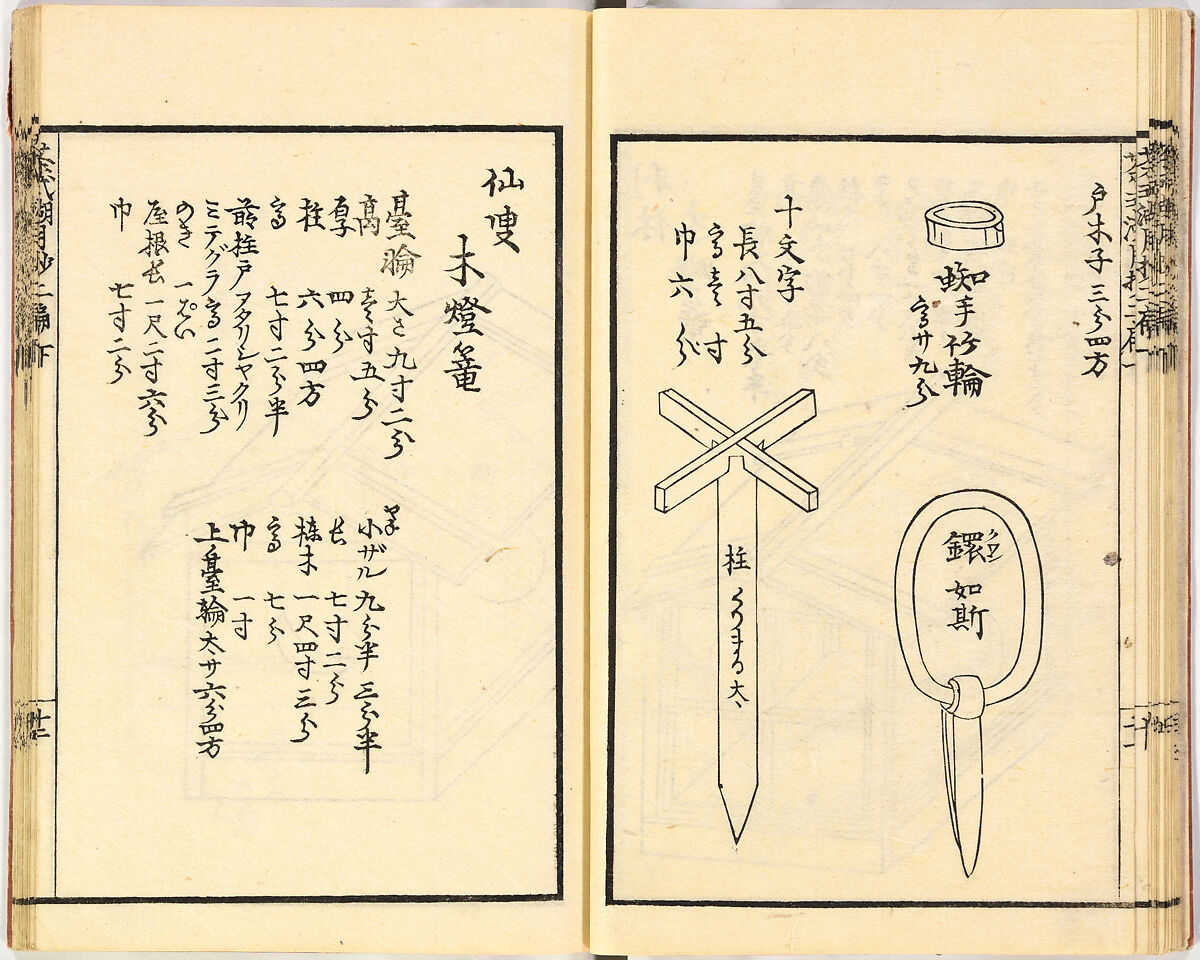 戸木子 三分四方
蜘手竹輪
高サ九分
鐶 クワン
如斯
十文字
長八寸五分
高壱寸
巾六分
柱
仙叟
木燈篭
臺輪 大さ九寸二分
高 壱寸五分
厚 四分
柱 六分四方
高 七寸二分半
前柱戸アタリシヤクリ
ミテグラ高二寸三分
のき 一ぱい
屋根長一尺二寸六分
巾 七寸二分
小ザル 九分半 三分半
長 七寸二分
棟木 一尺四寸三分
高 七分
巾 一寸
上ノ臺輪太サ六分四方
茶式湖月抄二編 下
十三